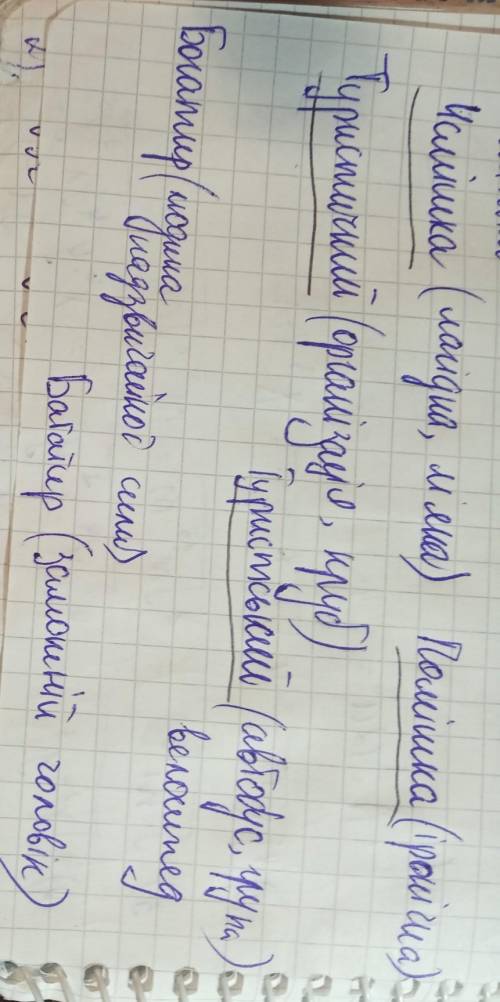 Усмішка (лагідна, м'яка) Посмішка (іронічна)
Туристичний (організація, клуб)
Туристський (автобус, група)
велосипед
Богатир (людина
надзвичайної сили)
Багатир (заможній чоловік)
2).